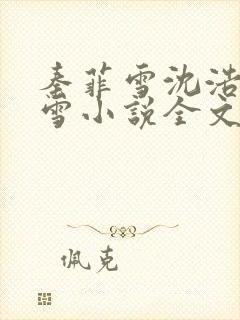 秦菲雪沈浩
雪小说全文
佩克